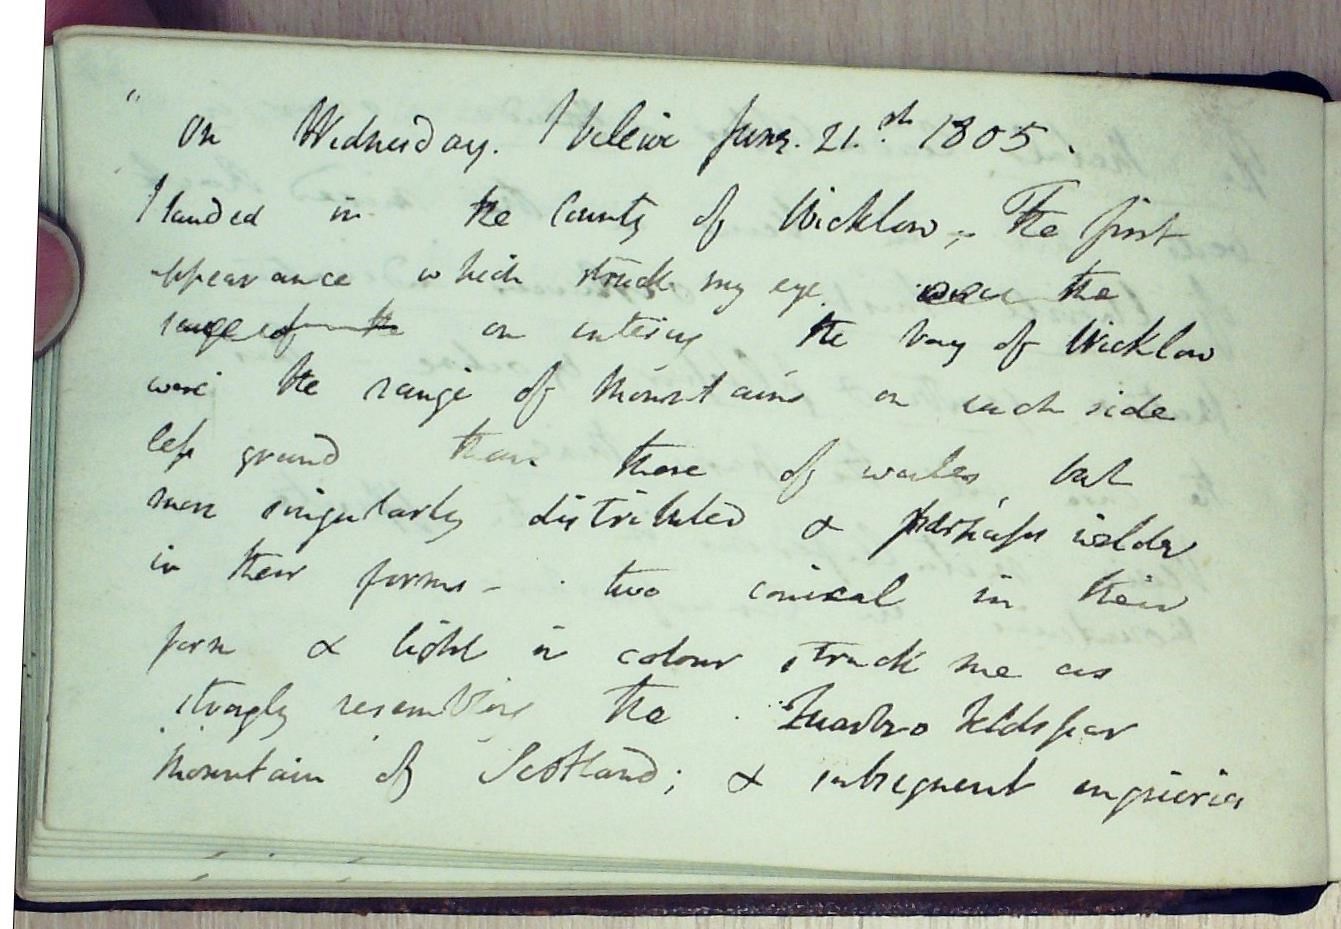 "
On Wednesday. I beleive June. 21.st 1805.
I landed in the County of Wicklow; The first
appearance which struck my eye were the
range of the on entering the bay of Wicklow
were the range of Mountains on each side
less grand than those of wales, but
more singularly distributed & perhaps wilder
in their forms - two conical in their
form & light in colour struck me as
strongly resembling the Quartzo feldspar
Mountain of Scotland; & subsequent enquiries